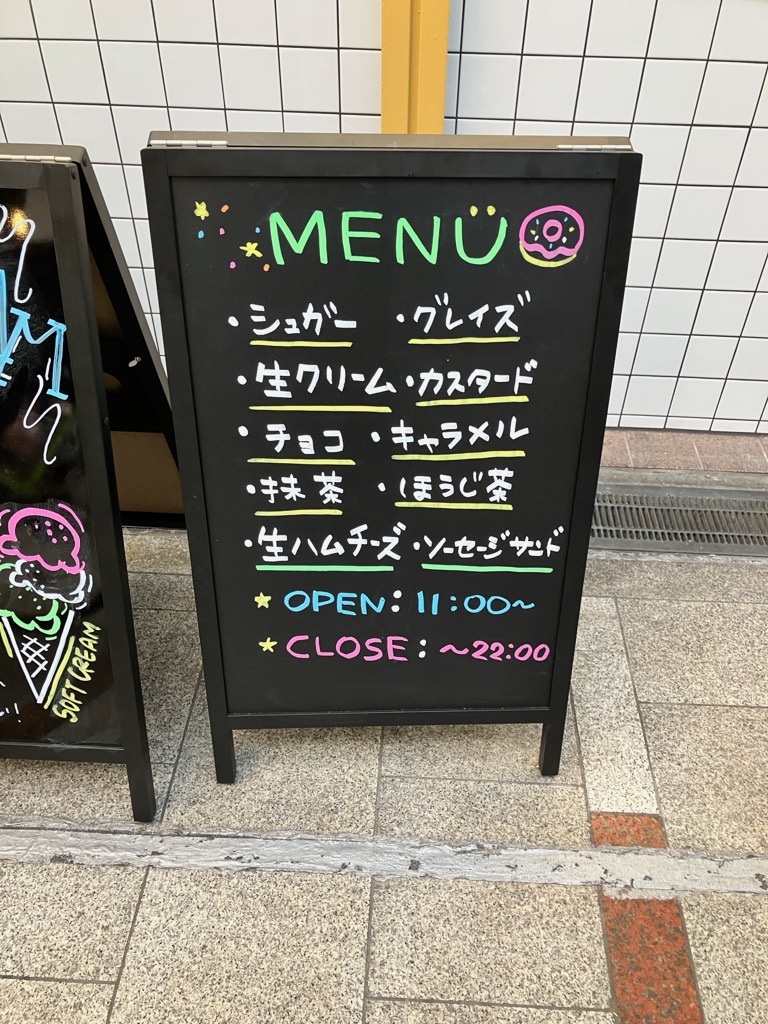 MENU
・シュガー ・グレイズ
・生クリーム ・カスタード
・チョコ ・キャラメル
・抹茶 ・ほうじ茶
・生ハムチーズ ・ソーセージサンド
★ OPEN: 11:00~
★ CLOSE: ~22:00
SOFT CREAM